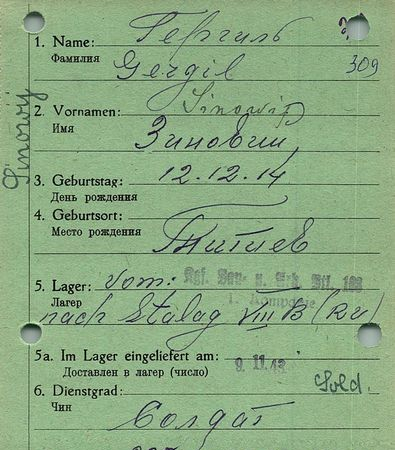 Гергиль
1. Name:
Фамилия
Gergil
309
2. Vornamen:
Имя
Зиновии
Sinowy
3. Geburtstag: 12.12.14
День рождения
4. Geburtsort:
Место рождения
5. Lager: vom: Kgf. Bau- u. Arb. Btl.
Лагер
1. Kompanie
nach Stalag VIII B
5a. Im Lager eingeliefert am: 9. 11. 43
Доставлен в лагер (число)
6. Dienstgrad: Sold.
Чин
Солдат